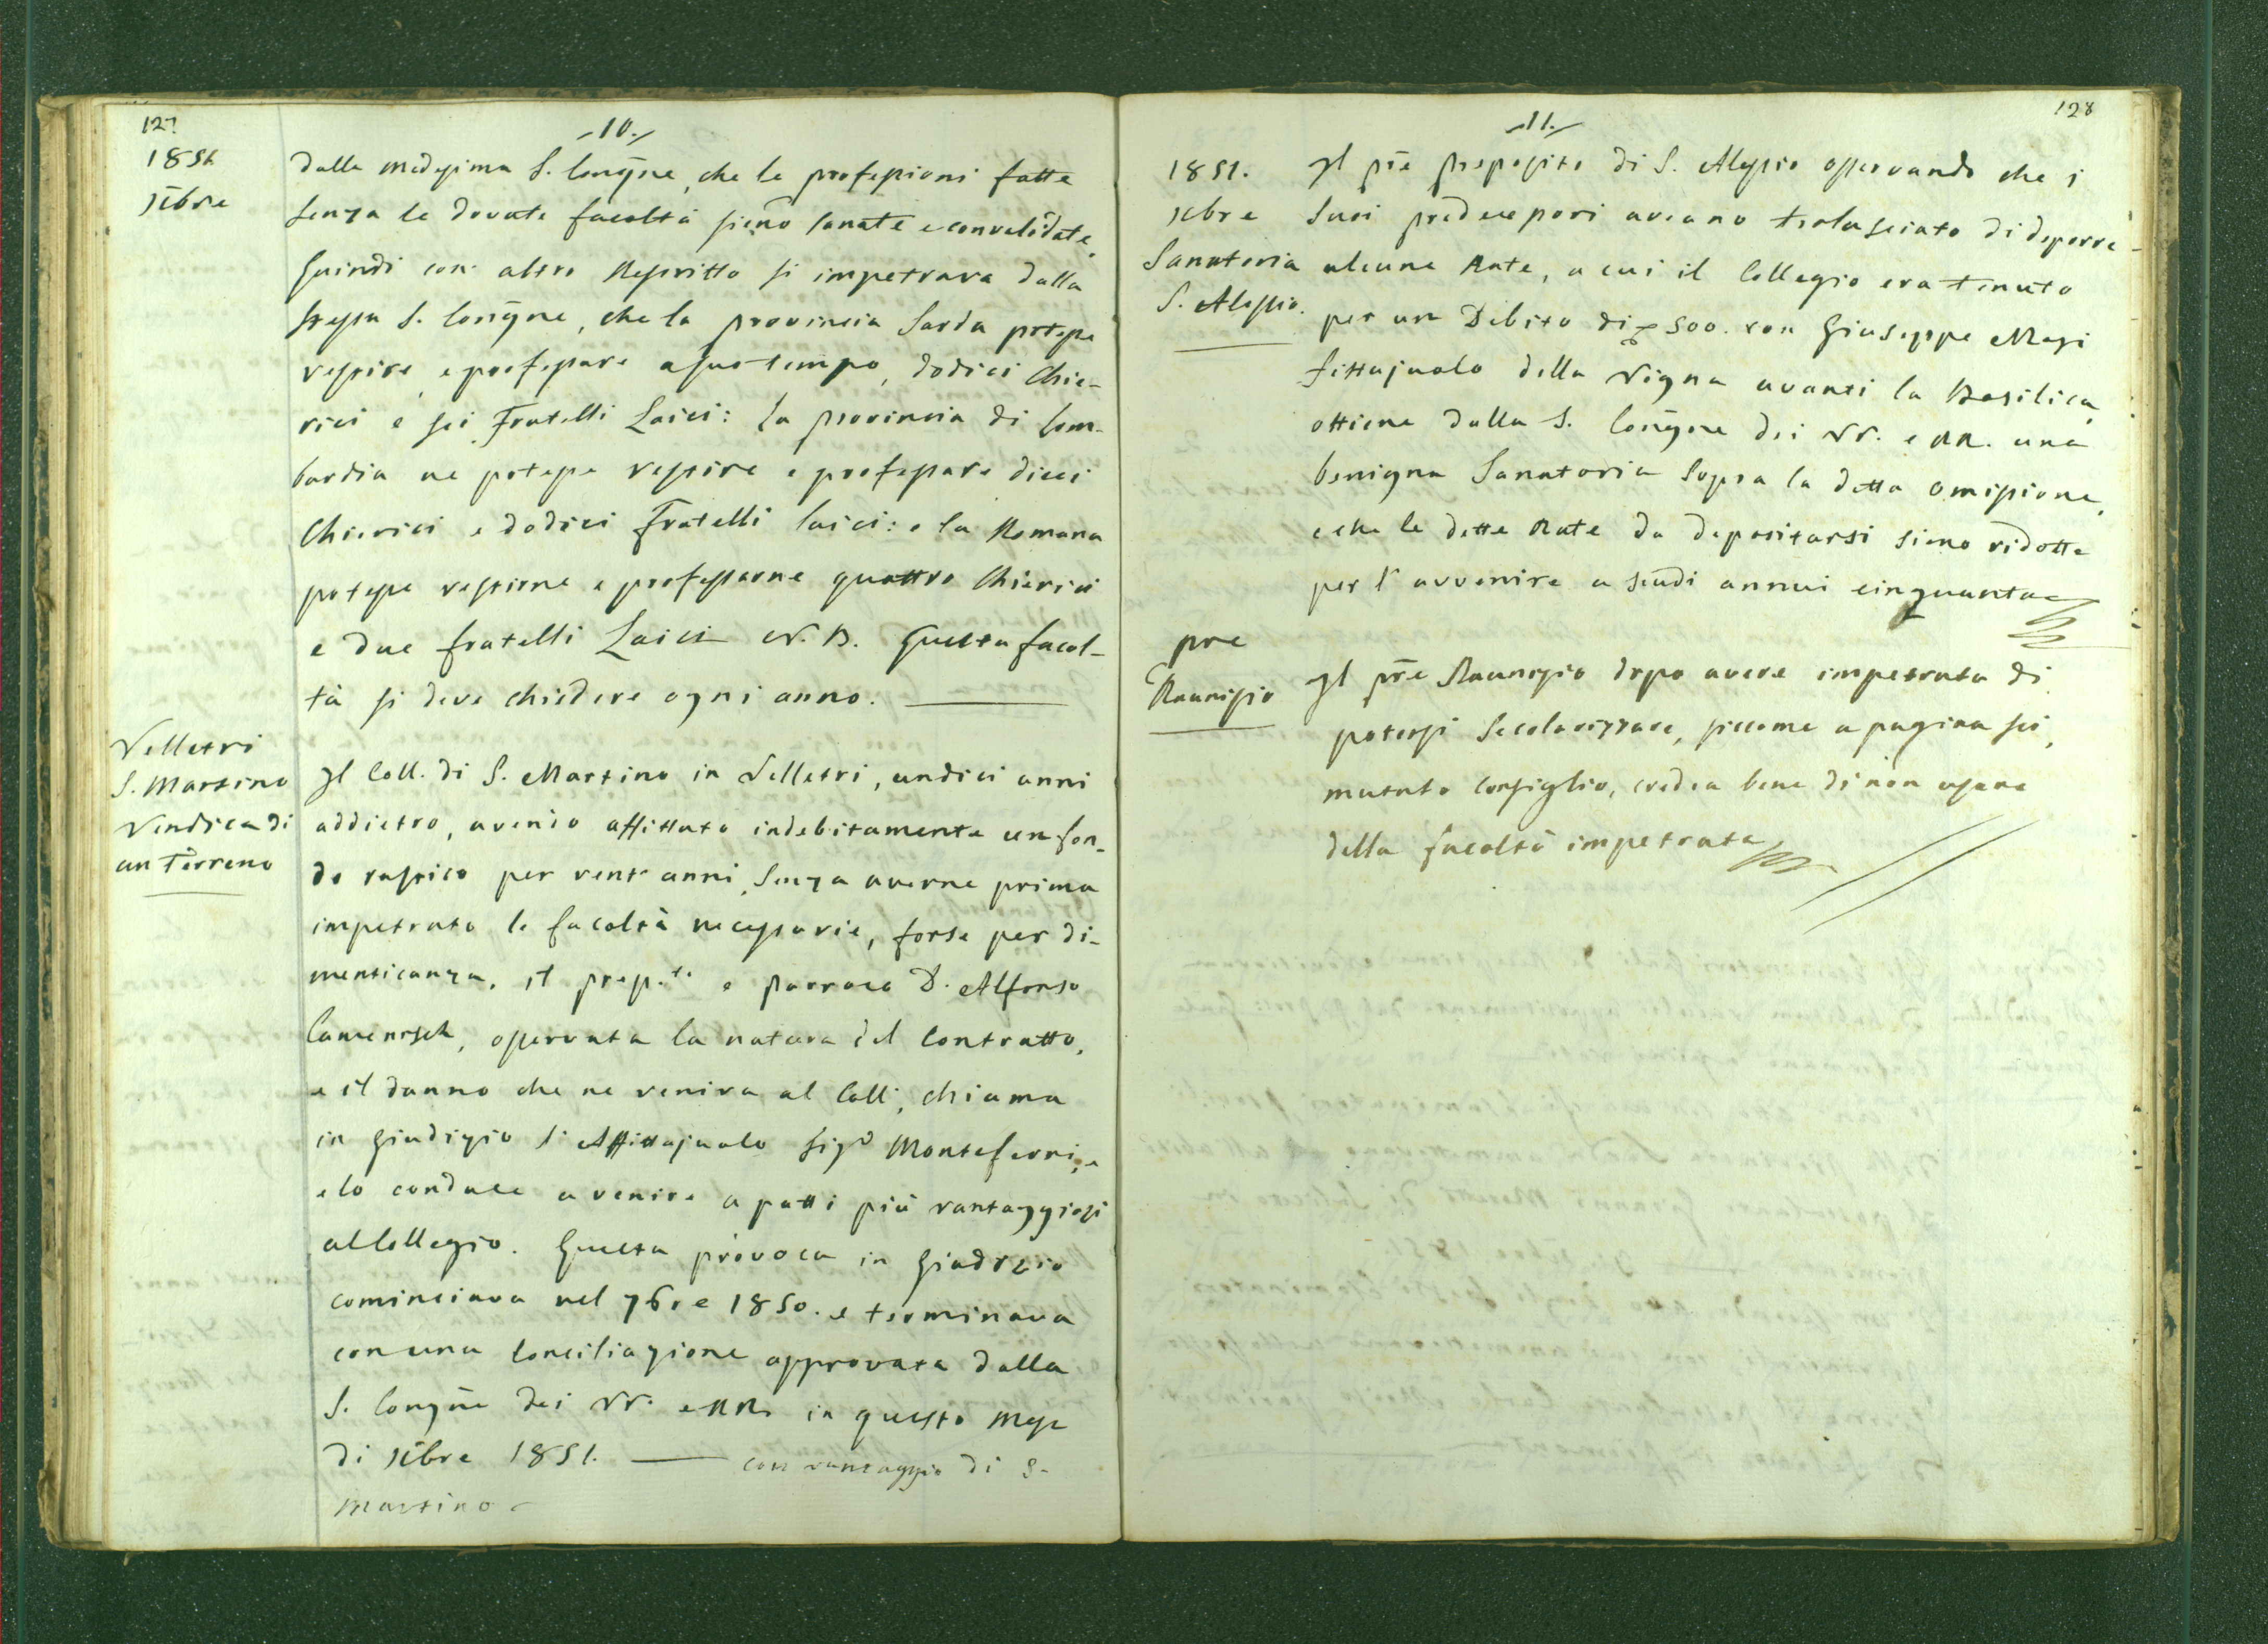 127
-10.-
1851
Xbre
dalla medesima S. Congñe, che le professioni fatte
senza le dovute facoltà sieno sanate e convalidate.
Quindi con altro Rescritto si impetrava dalla
stessa S. Congñe, che la provincia Sarda potesse
vestire, e professare a suo tempo, dodici Chie-
rici e sei Fratelli Laici: la provincia di Lom-
bardia ne potesse vestire e professare dieci
Chierici e dodici Fratelli laici: e la Romana
potesse vestirne e professarne quattro Chierici
e due fratelli Laici N.B. Questa facol-
tà si deve chiedere ogni anno.
Velletri
S. Martino
Vendica di
un Terreno
Il Coll. di S. Martino in Velletri, undici anni
addietro, avendo affittato indebitamente un fon-
do rustico per vent'anni, senza averne prima
impetrato le facoltà necessarie, forse per di-
menticanza, il prep.to e parroco D. Alfonso
Camenisch, osservata la natura del Contratto,
e il danno che ne veniva al Coll., chiama
in giudizio l'Affittajuolo Sigr Monteferri, e
e lo conduce a venire a patti più vantaggiosi
al Collegio. Questa provoca in Giudizio
cominciava nel 7bre 1850. e terminava
con una Conciliazione approvata dalla
S. Congñe dei VV. e RR. in questo mese
di Xbre 1851. con vantaggio di S.
Martino
128
-11.-
1851.
Xbre
Sanatoria
S. Alessio.
Il pre preposito di S. Alessio osservando che i
suoi predecessori aveano tralasciato di deporre
alcune Rate, a cui il Collegio era tenuto
per un Debito di 500. con Giuseppe Masi
fittajuolo della Vigna avanti la Basilica,
ottiene dalla S. Congñe dei VV. e RR. una
benigna Sanatoria sopra la detta omissione,
e che le dette Rate da depositarsi sieno ridotte
per l'avvenire a scudi annui cinquanta
pre
Raunisio
Il pre Raunisio dopo avere impetrata di
potersi Secolarizzare, siccome a pagina sei,
mutato consiglio, credea bene di non usare
della facoltà impetrata